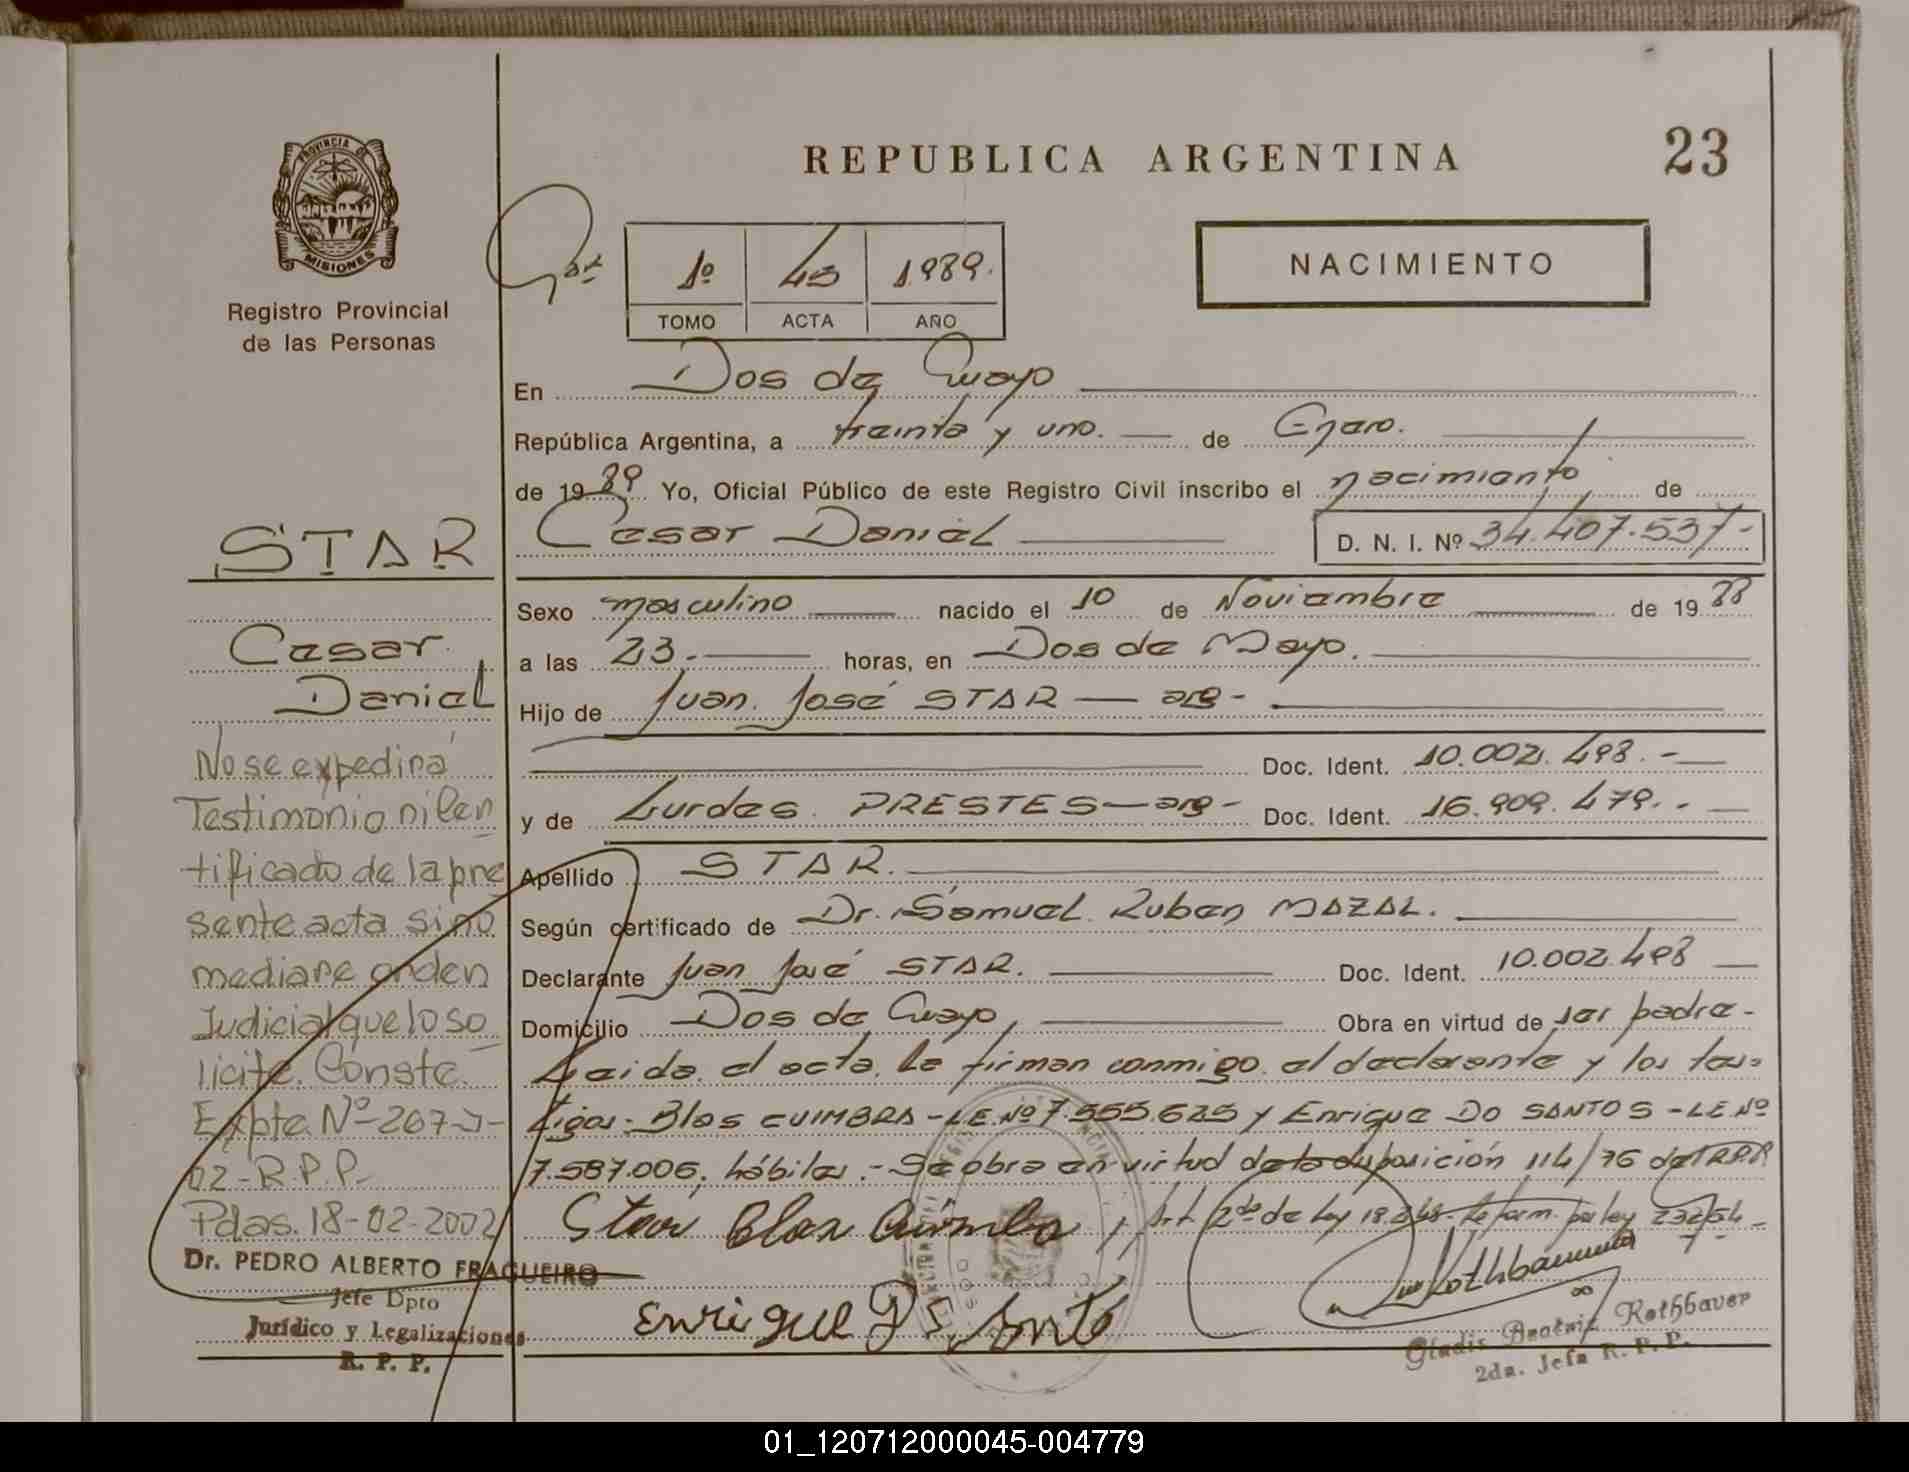 PROVINCIA DE
MISIONES
Registro Provincial
de las Personas
REPUBLICA ARGENTINA
23
1º 45 1989.
TOMO ACTA AÑO
NACIMIENTO
En Dos de Mayo
República Argentina, a treinta y uno. de Enero.
de 1989 Yo, Oficial Público de este Registro Civil inscribo el nacimiento de
Cesar Daniel D. N. I. Nº 34.407.537-
Sexo masculino nacido el 10 de Noviembre de 1988
a las 23. horas, en Dos de Mayo.
Hijo de Juan José STAR — arg-
Doc. Ident. 10.002.498.-
y de Lurdes PRESTES — arg- Doc. Ident. 16.909.479.-
Apellido STAR.
Según certificado de Dr. Samuel Ruben MAZAL.
Declarante Juan José STAR. Doc. Ident. 10.002.498
Domicilio Dos de Mayo, Obra en virtud de ser padre-
Leida el acta, la firman conmigo el declarante y los tes-
tigos: Blas CUIMBRA - LE.Nº 7.555.625 y Enrique DO SANTOS - LE.Nº
7.587.006, hábiles.- Se obra en virtud de la disposición 114/76 del R.P.P.
Art. 2do de Ley reform. por ley
Star Blas Cuimba
Enrique D S Santo
Gladis Beatriz Rothbauer
2da. Jefa R. P. P.
STAR
Cesar
Daniel
No se expedirá
Testimonio ni cen
tificado de la pre
sente acta si no
mediane orden
Judicial que lo so
licite. Conste.
Expte Nº-267-J-
02-R.P.P.
Pdas. 18-02-2002
Dr. PEDRO ALBERTO FRAGUEIRO
Jefe Dpto
Jurídico y Legalizaciones
R. P. P.
01_120712000045-004779